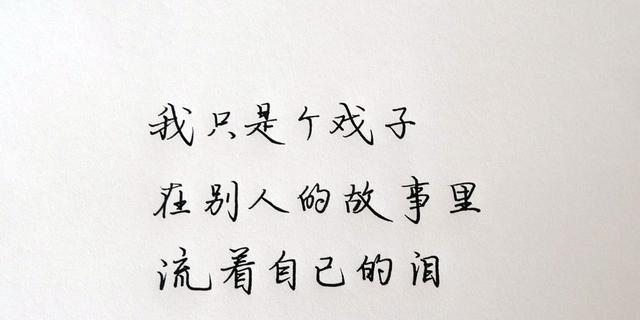 我只是个戏子
在别人的故事里
流着自己的泪